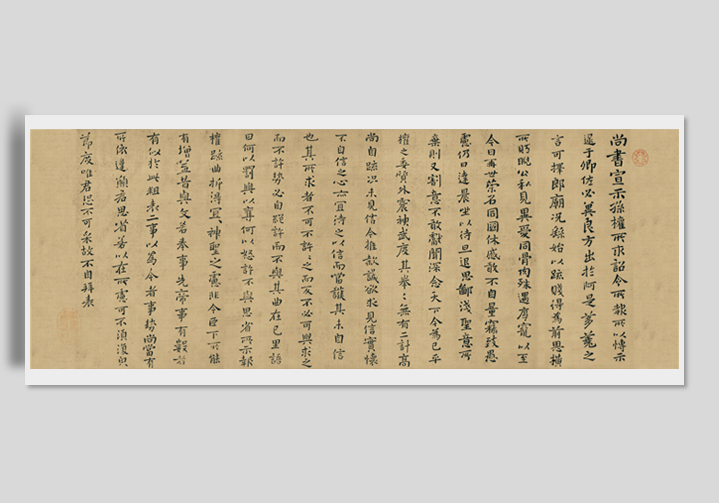 尚書宣示孫權所求詔令所報所以博示
逮于卿佐必冀良方出於阿是芻蕘之
言可擇郎廟況繇始以疏賤得為前恩橫
所盼睨公私見異愛同骨肉殊遇厚寵以至
今日再世榮名同國休慼敢不自量竊致愚
慮仍日達晨坐以待旦退思鄙淺聖意所
棄則又割意不敢獻聞深念天下今為已平
權之委質外震神武度其拳拳無有二計高
尚自疏況未見信今推款誠欲求見信實懷
不自信之心亦宜待之以信而當護其未自信
也其所求者不可不許許之而反不必可與求之
而不許勢必自絕許而不與其曲在己里語
曰何以罰與以奪何以怒許不與思省所示報
權疏曲折得宜宜神聖之慮非今臣下所能
有增益昔與文若奉事先帝事有數者
有似於此粗表二事以為今者事勢尚當有
所依違願君思省若以在所慮可不須復與
節度唯君恐不可采故不自拜表